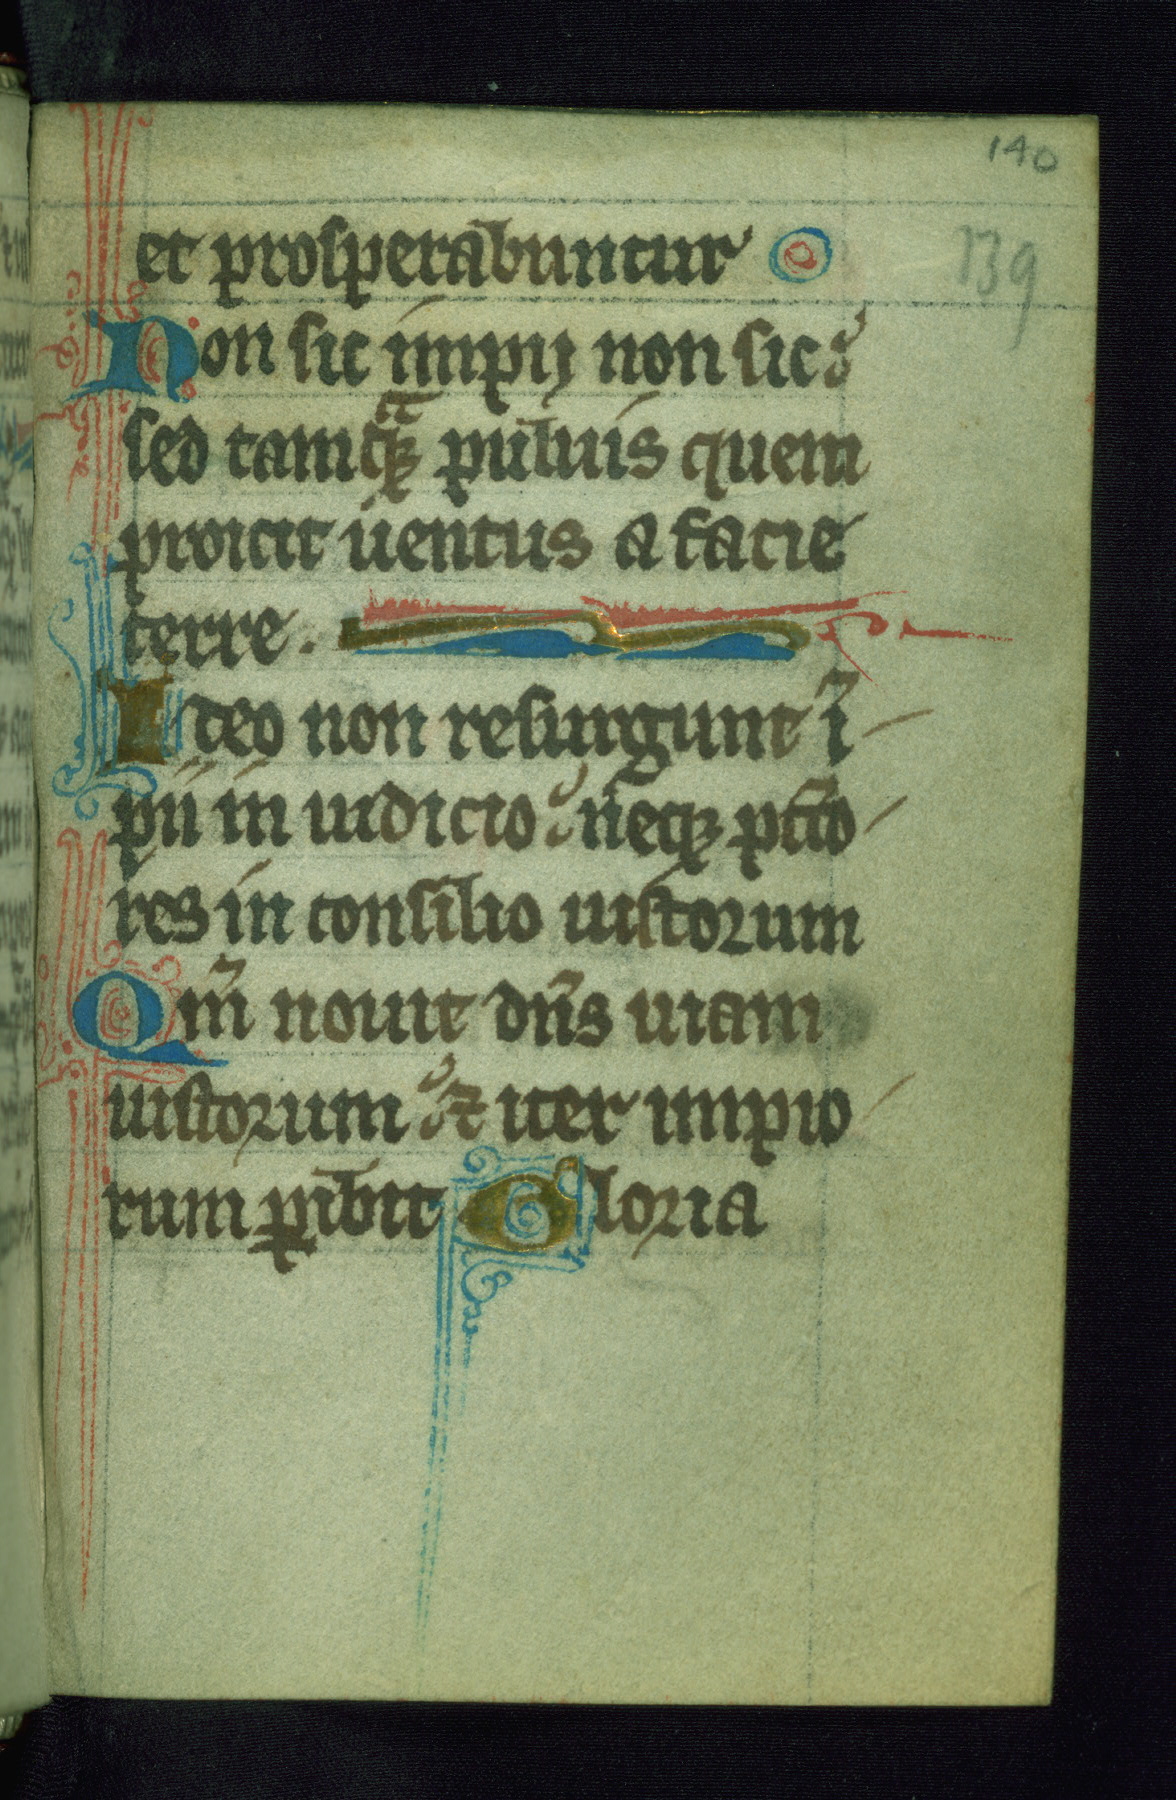 140
139
et prosperabuntur
Non sic impij non sic
sed tamqȝ puluis quem
proicit uentus a facie
terre.
Ideo non resurgunt ī
pii in iudicio neqȝ pcc̄o
res in consilio iustorum
Qm̄ nouit dn̄s uiam
iustorum ⁊ iter impio
rum ꝑibit Gloria